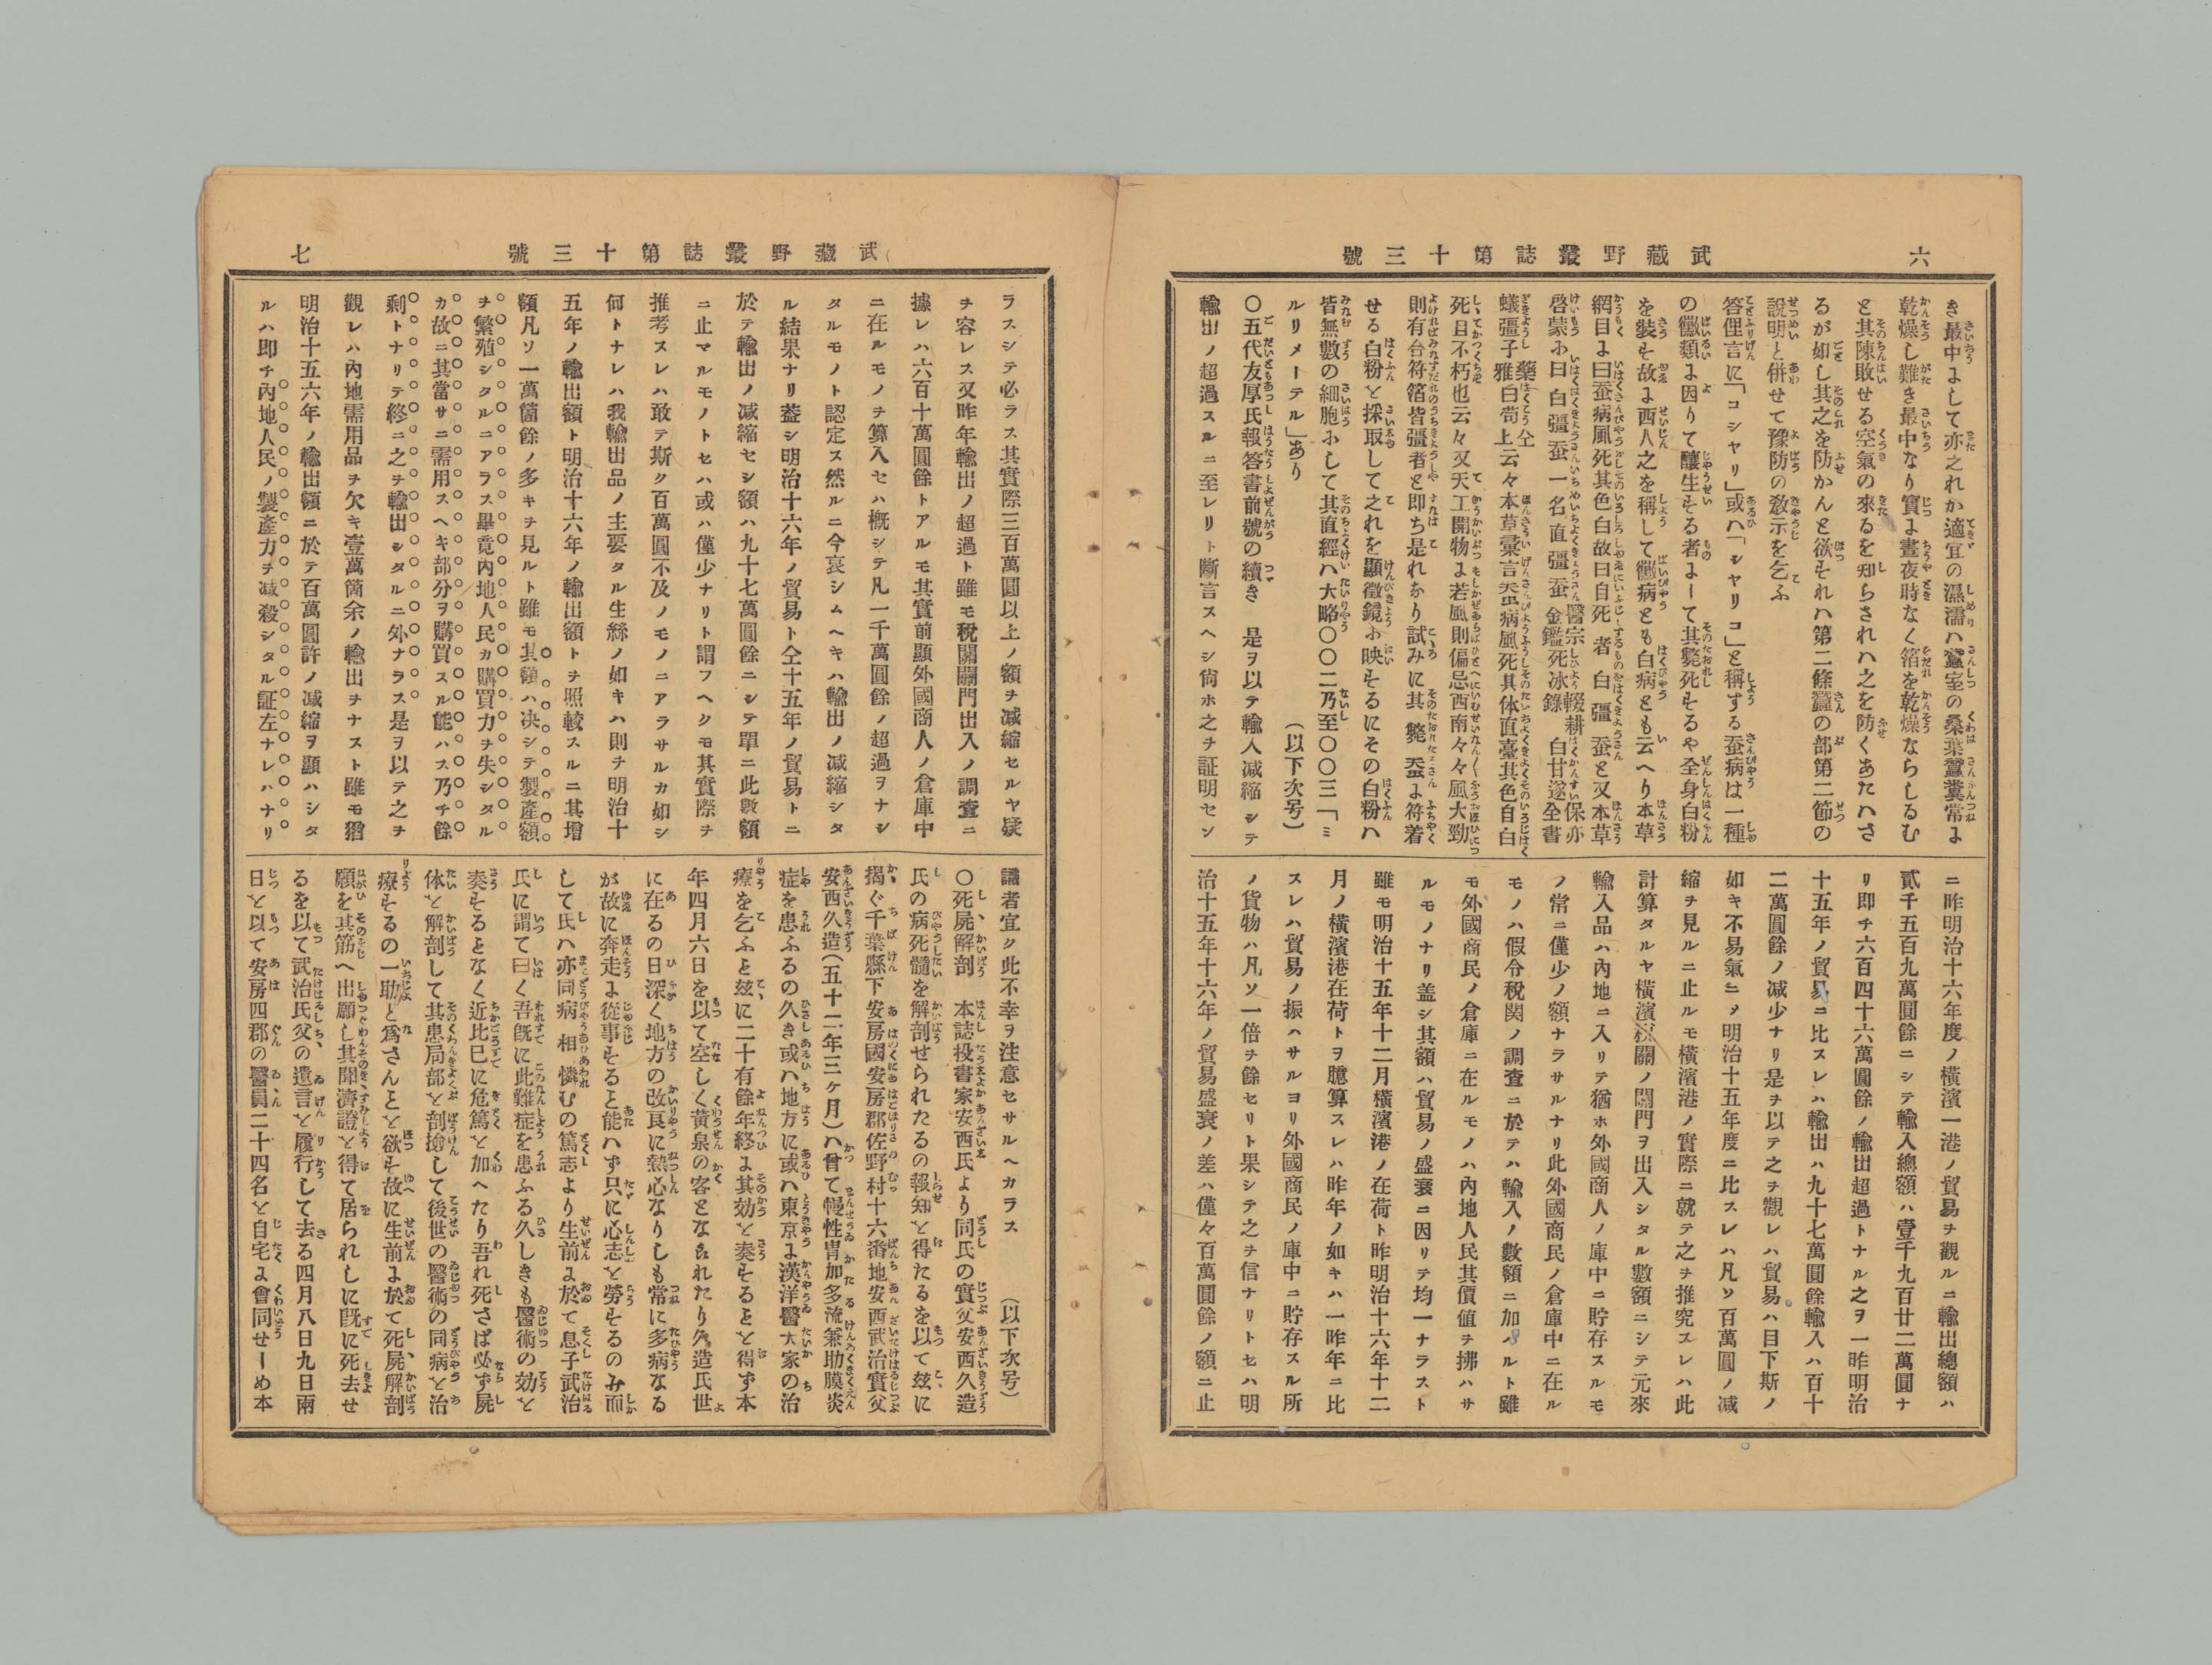 六
武藏野叢誌第十三號
き最中よして亦之れか適宜の濕濡ハ蠶室の桑葉蠶糞常よ
乾燥し難き最中なり實よ晝夜時なく箔を乾燥ならしるむ
と其陳敗せる空氣の來るを知らされハ之を防くあたハさ
るが如し其之を防かんと欲それハ第二條蠶の部第二節の
說明と併せて豫防の敎示を乞ふ
答俚言に「コシヤリ」或ハ「シヤリコ」と稱する蚕病は一種
の黴類よ因りて釀生そる者よーて其斃死そるや全身白粉
を裝そ故よ西人之を稱して黴病とも白病とも云へり本草
網目よ曰蚕病風死其色白故曰自死者白彊蚕と又本草
啓蒙ふ曰白彊蚕一名直彊蚕醫宗金鑑死冰錄輟耕白甘遂保亦全書
蟻彊子藥雅白苟上仝云々本草彙言蚕病風死其体直臺其色自白
死且不朽也云々又天工開物よ若風則偏忌西南々々風大勁
則有台符箔皆彊者と即ち是れなり試みに其斃蚕よ符着
せる白粉と採取して之れを顯微鏡ふ映そるにその白粉ハ
皆無數の細胞ふして其直經ハ大略〇〇二乃至〇〇三「ミ
ルリメーテル」あり
（以下次号）
〇五代友厚氏報答書前號の續き　是ヲ以テ輸入减縮シテ
輸出ノ超過スルニ至レリト斷言スヘシ尙ホ之ヲ証明セン
ニ昨明治十六年度ノ橫濱一港ノ貿易ヲ觀ルニ輸出總額ハ
貳千五百九萬圓餘ニシテ輸入總額ハ壹千九百廿二萬圓ナ
リ即チ六百四十六萬圓餘ノ輸出超過トナル之ヲ一昨明治
十五年ノ貿易ニ比スレハ輸出ハ九十七萬圓餘輸入ハ百十
二萬圓餘ノ减少ナリ是ヲ以テ之ヲ觀レハ貿易ハ目下斯ノ
如キ不易氣ニメ明治十五年度ニ比スレハ凡ソ百萬圓ノ减
縮ヲ見ルニ止ルモ橫濱港ノ實際ニ就テ之ヲ推究スレハ此
計算タルヤ橫濱稅關ノ關門ヲ出入シタル數額ニシテ元來
輸入品ハ內地ニ入リテ猶ホ外國商人ノ庫中ニ貯存スルモ
ノ常ニ僅少ノ額ナラサルナリ此外國商民ノ倉庫中ニ在ル
モノハ假令稅関ノ調查ニ於テハ輸入ノ數額ニ加ハルト雖
モ外國商民ノ倉庫ニ在ルモノハ內地人民其價値ヲ拂ハサ
ルモノナリ盖シ其額ハ貿易ノ盛衰ニ因リテ均一ナラスト
雖モ明治十五年十二月橫濱港ノ在荷ト昨明治十六年十二
月ノ橫濱港在荷トヲ臆算スレハ昨年ノ如キハ一昨年ニ比
スレハ貿易ノ振ハサルヨリ外國商民ノ庫中ニ貯存スル所
ノ貨物ハ凡ソ一倍ヲ餘セリト果シテ之ヲ信ナリトセハ明
治十五年十六年ノ貿易盛衰ノ差ハ僅々百萬圓餘ノ額ニ止
武藏野叢誌第十三號
七
ラスシテ必ラス其實際三百萬圓以上ノ額ヲ减縮セルヤ疑
ヲ容レス又昨年輸出ノ超過ト雖モ稅關關門出入ノ調查ニ
據レハ六百十萬圓餘トアルモ其實前顯外國商人ノ倉庫中
ニ在ルモノヲ算入セハ概シテ凡一千萬圓餘ノ超過ヲナシ
タルモノト認定ス然ルニ今哀シムヘキハ輸出ノ减縮シタ
ル結果ナリ蓋シ明治十六年ノ貿易ト仝十五年ノ貿易トニ
於テ輸出ノ减縮セシ額ハ九十七萬圓餘ニシテ單ニ此數額
ニ止マルモノトセハ或ハ僅少ナリト謂フヘクモ其實際ヲ
推考スレハ敢テ斯ク百萬圓不及ノモノニアラサルカ如シ
何トナレハ我輸出品ノ主要タル生絲ノ如キハ則チ明治十
五年ノ輸出額ト明治十六年ノ輸出額トヲ照較スルニ其增
額凡ソ一萬箇餘ノ多キヲ見ルト雖モ其額ハ决シテ製產額
ヲ繁殖シタルニアラス畢竟內地人民カ購買力ヲ失シタル
カ故ニ其當サニ需用スヘキ部分ヲ購買スル能ハス乃チ餘
剩トナリテ終ニ之ヲ輸出シタルニ外ナラス是ヲ以テ之ヲ
觀レハ內地需用品ヲ欠キ壹萬箇余ノ輸出ヲナスト雖モ猶
明治十五六年ノ輸出額ニ於テ百萬圓許ノ减縮ヲ顯ハシタ
ルハ即チ內地人民ノ製產力ヲ减殺シタル証左ナレハナリ
識者宜ク此不幸ヲ注意セサルヘカラス　（以下次号）
〇死屍解剖　本誌投書家安西氏より同氏の實父安西久造
氏の病死髓を解剖せられたるの報知と得たるを以て玆に
揭ぐ千葉縣下安房國安房郡佐野村十六番地安西武治實父
安西久造（五十二年三ヶ月）ハ曾て慢性胃加多流兼助膜炎
症を患ふるの久き或ハ地方に或ハ東京よ漢洋醫大家の治
療を乞ふと玆に二十有餘年終よ其効と奏そるとと得ず本
年四月六日を以て空しく黃泉の客となられたり久造氏世
に在るの日深く地方の改良に熱心なりしも常に多病なる
が故に奔走よ從事そると能ハず只に心志と勞そるのみ而
して氏ハ亦同病相憐むの篤志より生前よ於て息子武治
氏に謂て曰く吾旣に此難症を患ふる久しきも醫術の効と
奏そるとなく近比已に危篤と加へたり吾れ死さば必ず屍
体と解剖して其患局部と剖撿して後世の醫術の同病と治
療そるの一助と爲さんとと欲そ故に生前よ於て死屍解剖
願を其筋へ出願し其聞濟證と得て居られしに旣に死去せ
るを以て武治氏父の遺言と履行して去る四月八日九日兩
日と以て安房四郡の醫員二十四名と自宅よ會同せーめ本